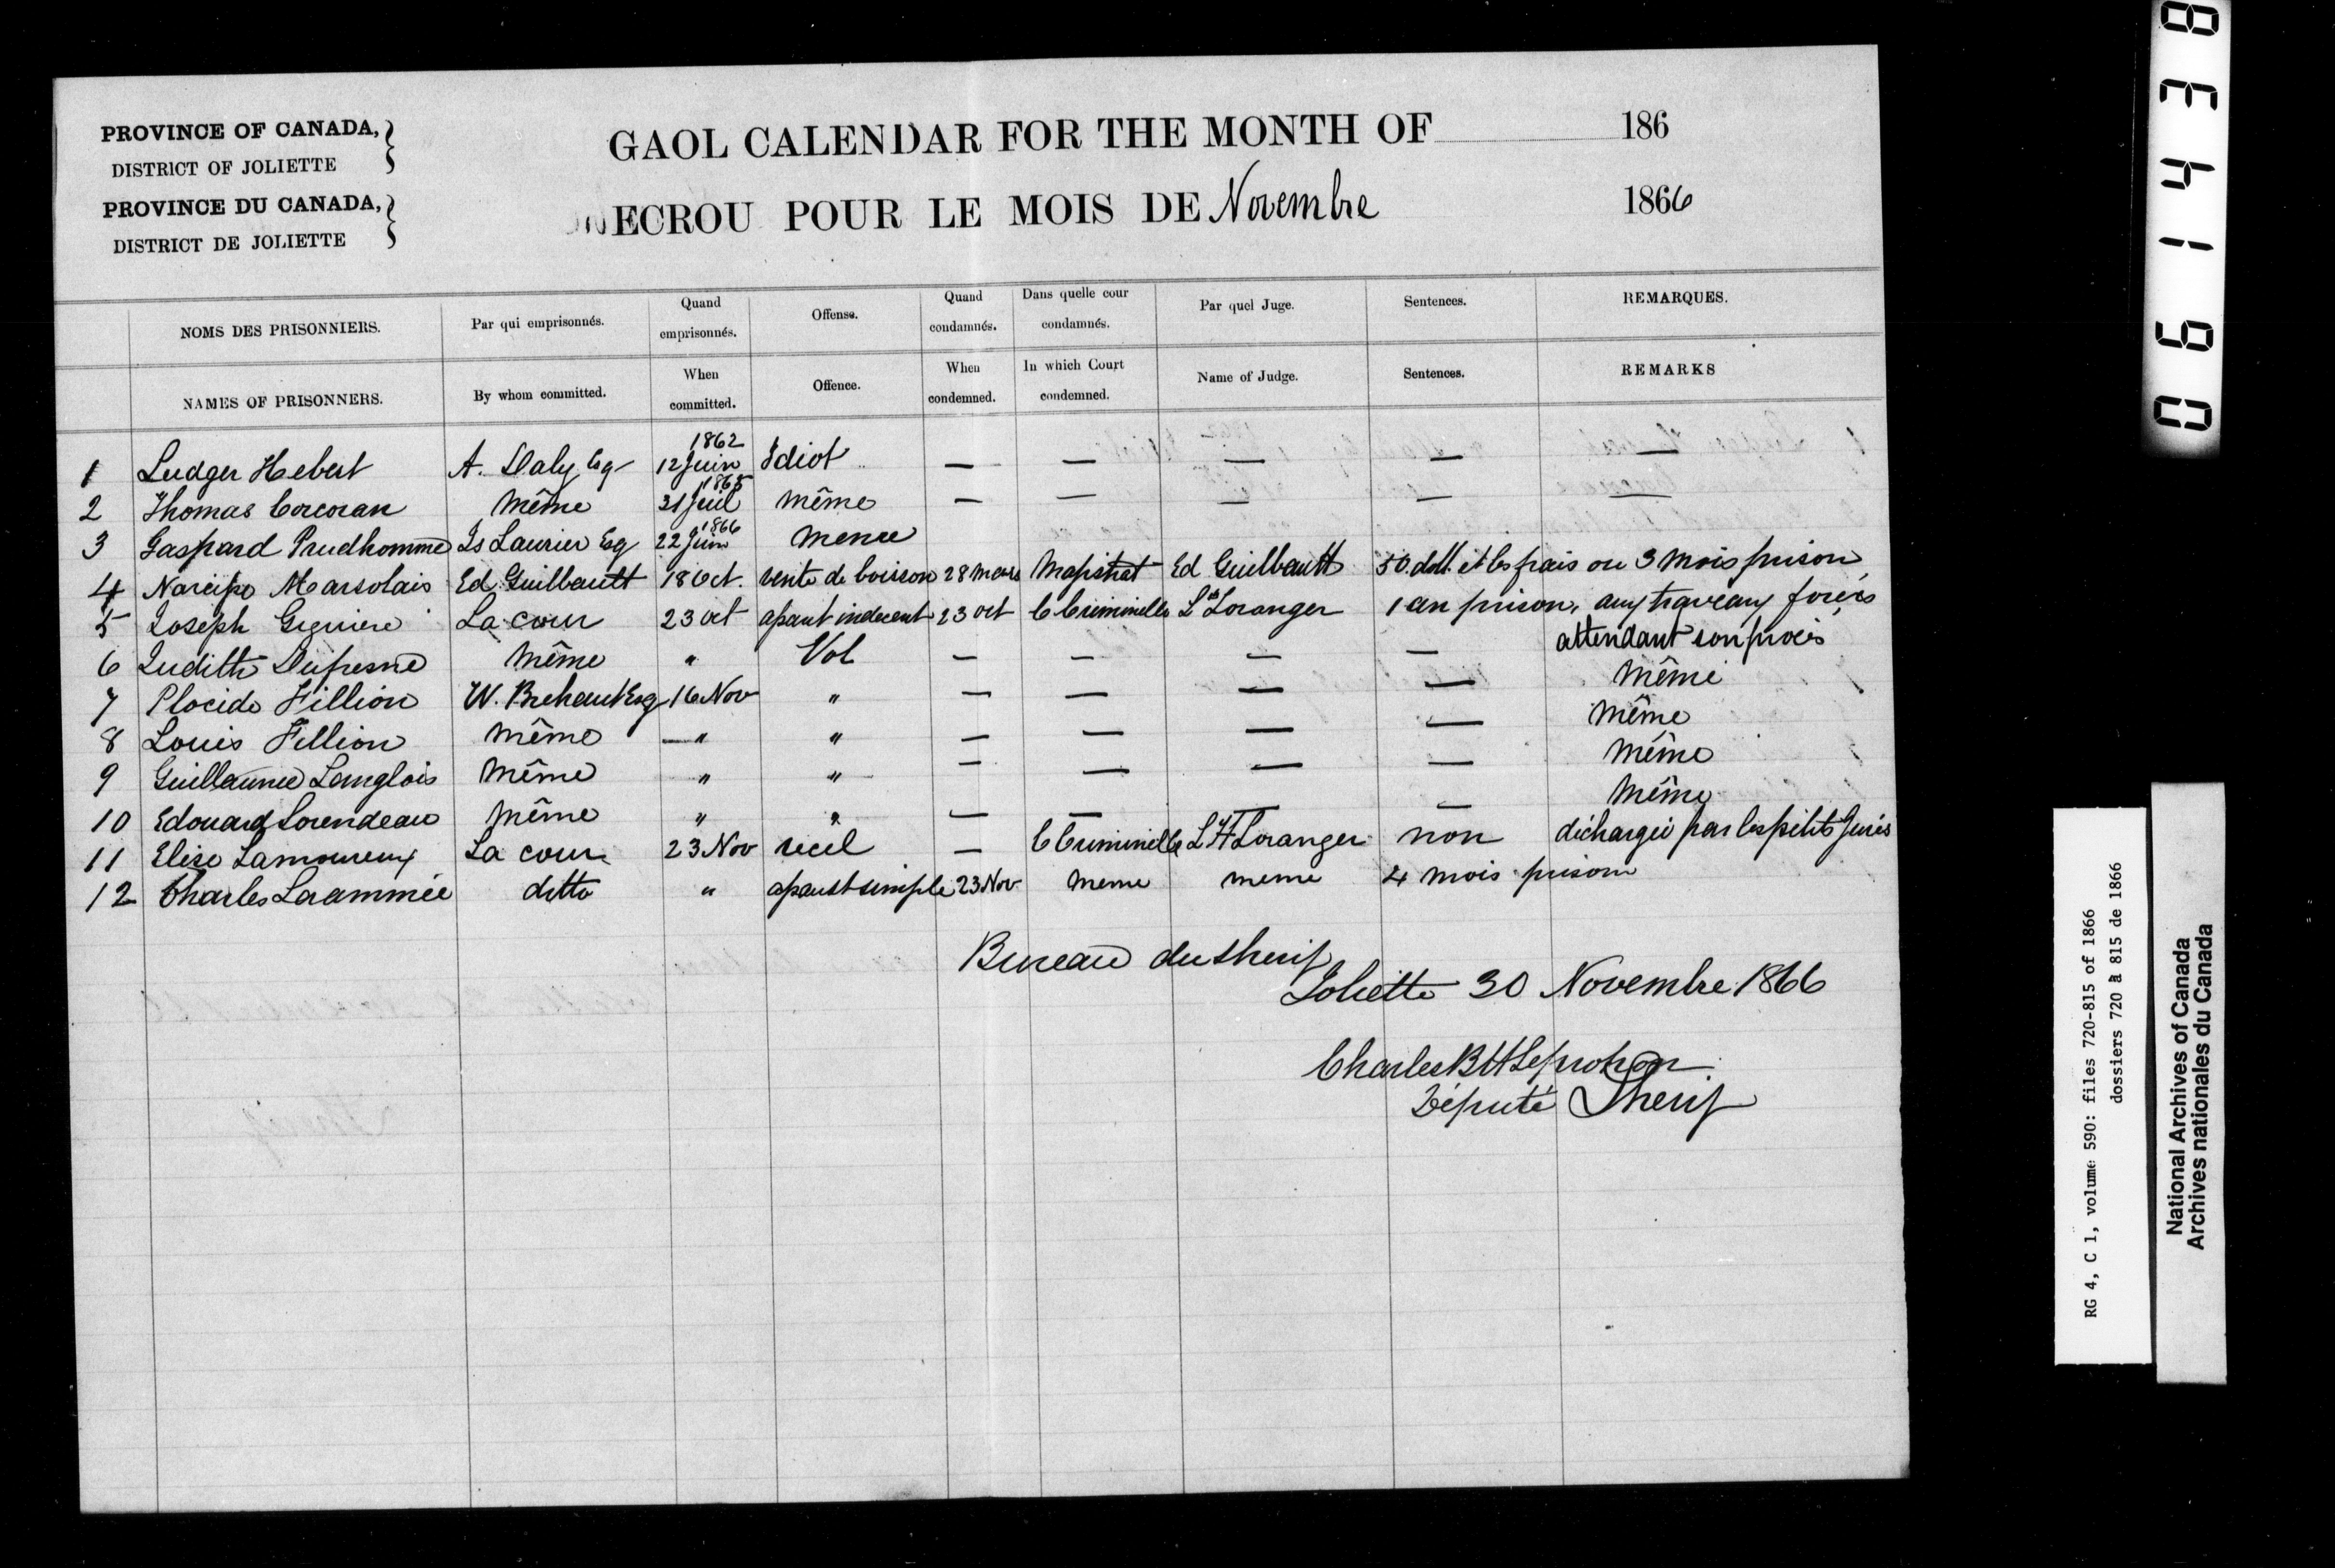 PROVINCE OF CANADA,
DISTRICT OF JOLIETTE
PROVINCE DU CANADA,
DISTRICT DE JOLIETTE
GAOL CALENDAR FOR THE MONTH OF 186
ECROU POUR LE MOIS DE Novembre 1866
NOMS DES PRISONNIERS. Par qui emprisonnés. Quand emprisonnés. Offense. Quand condamnés. Dans quelle cour condamnés. Par quel Juge. Sentences. REMARQUES.
NAMES OF PRISONNERS. By whom committed. When committed. Offence. When condemned. In which Court condemned. Name of Judge. Sentences. REMARKS
1 Ludger Hebert A. Daly Esq 1862 12 Juin Idiot — — — — —
2 Thomas Corcoran Même 1865 31 Juil même — — — — —
3 Gaspard Prudhomme Is Laurier Esq 1866 22 Juin menace
4 Narcisse Marsolais Ed Guilbault 18 Oct. vente de boisson 28 mars Magistrat Ed Guilbault 50 doll. et les frais ou 3 mois prison
5 Joseph Giguere La cour 23 oct assaut indecent 23 oct C Criminelle Loranger 1 an prison, aux traveaux forcés
6 Judith Dufresne Même " Vol — — — — attendant son procès
7 Placide Fillion W. Brehaut Esq 16 Nov " — — — — Même
8 Louis Fillion Même — " " — — — — Même
9 Guillaume Langlois Même " " — — — — Même
10 Edouard Lorendeau Même " " — — — — Même
11 Elise Lamoureux La cour 23 Nov recel — C Criminelle Loranger non déchargée par les petits Jurés
12 Charles Larammée ditto " assaut simple 23 Nov meme meme 4 mois prison
Bureau du Sherif
Joliette 30 Novembre 1866
Charles B H Leprohon
Député Sherif
061438
RG 4, C 1, volume 590: files 720-815 of 1866
dossiers 720 à 815 de 1866
National Archives of Canada
Archives nationales du Canada